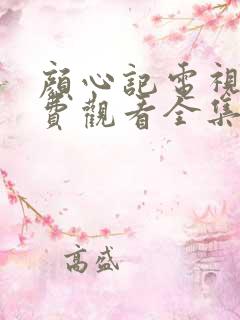 顏心記電視
費觀看全集
高盛